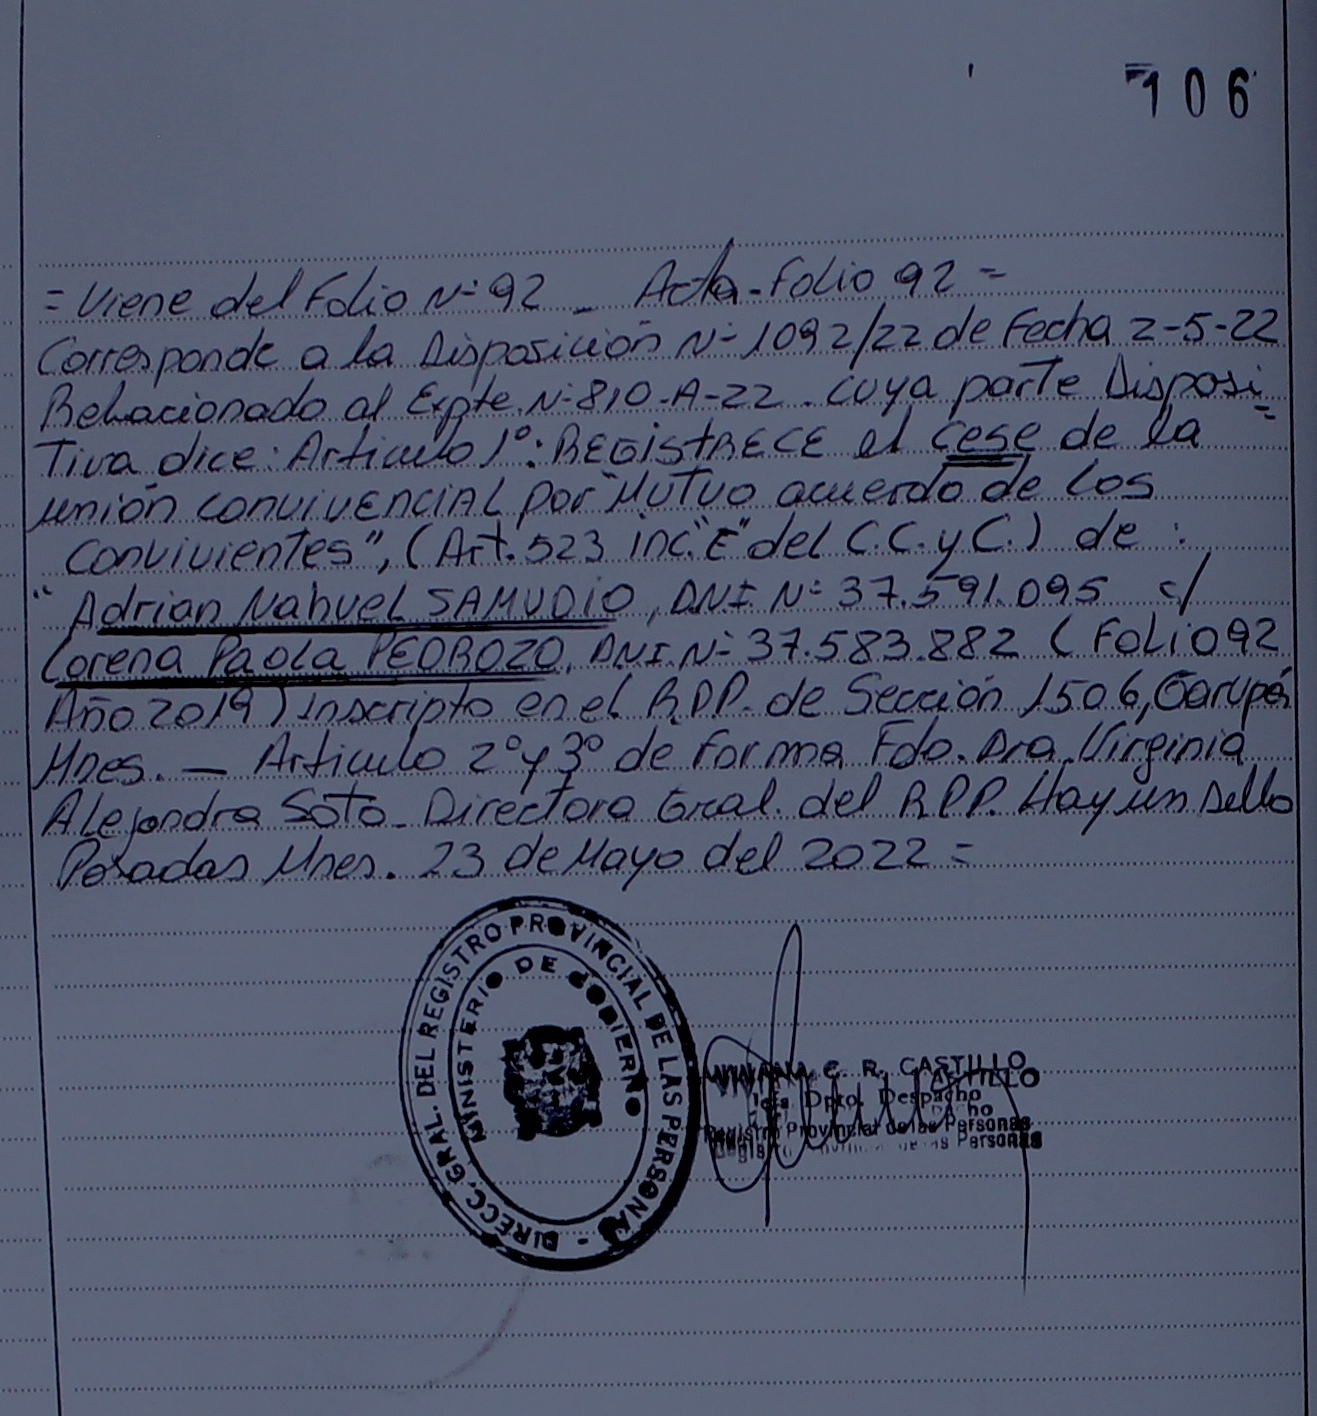 106
= Viene del Folio Nº 92 _ Acta - Folio 92 =
Corresponde a la Disposición Nº 1092/22 de Fecha 2-5-22
Relacionado al Expte Nº 810-A-22. cuya parte Disposi=
Tiva dice: Articulo 1º: REGISTRECE el cese de la
unión convivencial por "Mutuo acuerdo de los
convivientes", (Art. 523 inc. "E" del C.C.yC.) de :
"Adrian Nahuel SAMUDIO, DNI Nº 37.591.095 c/
Lorena Paola PEDROZO, DNI. Nº 37.583.882 (FOLIO 92
Año 2019) Inscripto en el R.P.P. de Sección 1506, Garupá
Mnes. — Articulo 2º y 3º de forma Fdo. Dra. Virginia
Alejandra Soto - Directora Gral. del R.P.P. Hay un Sello
Posadas Mnes. 23 de Mayo del 2022 =
DIRECC. GRAL. DEL REGISTRO PROVINCIAL DE LAS PERSONAS -
MINISTERIO DE GOBIERNO
C. R. CASTILLO
Jefa Dpto. Despacho
Registro Provincial de las Personas